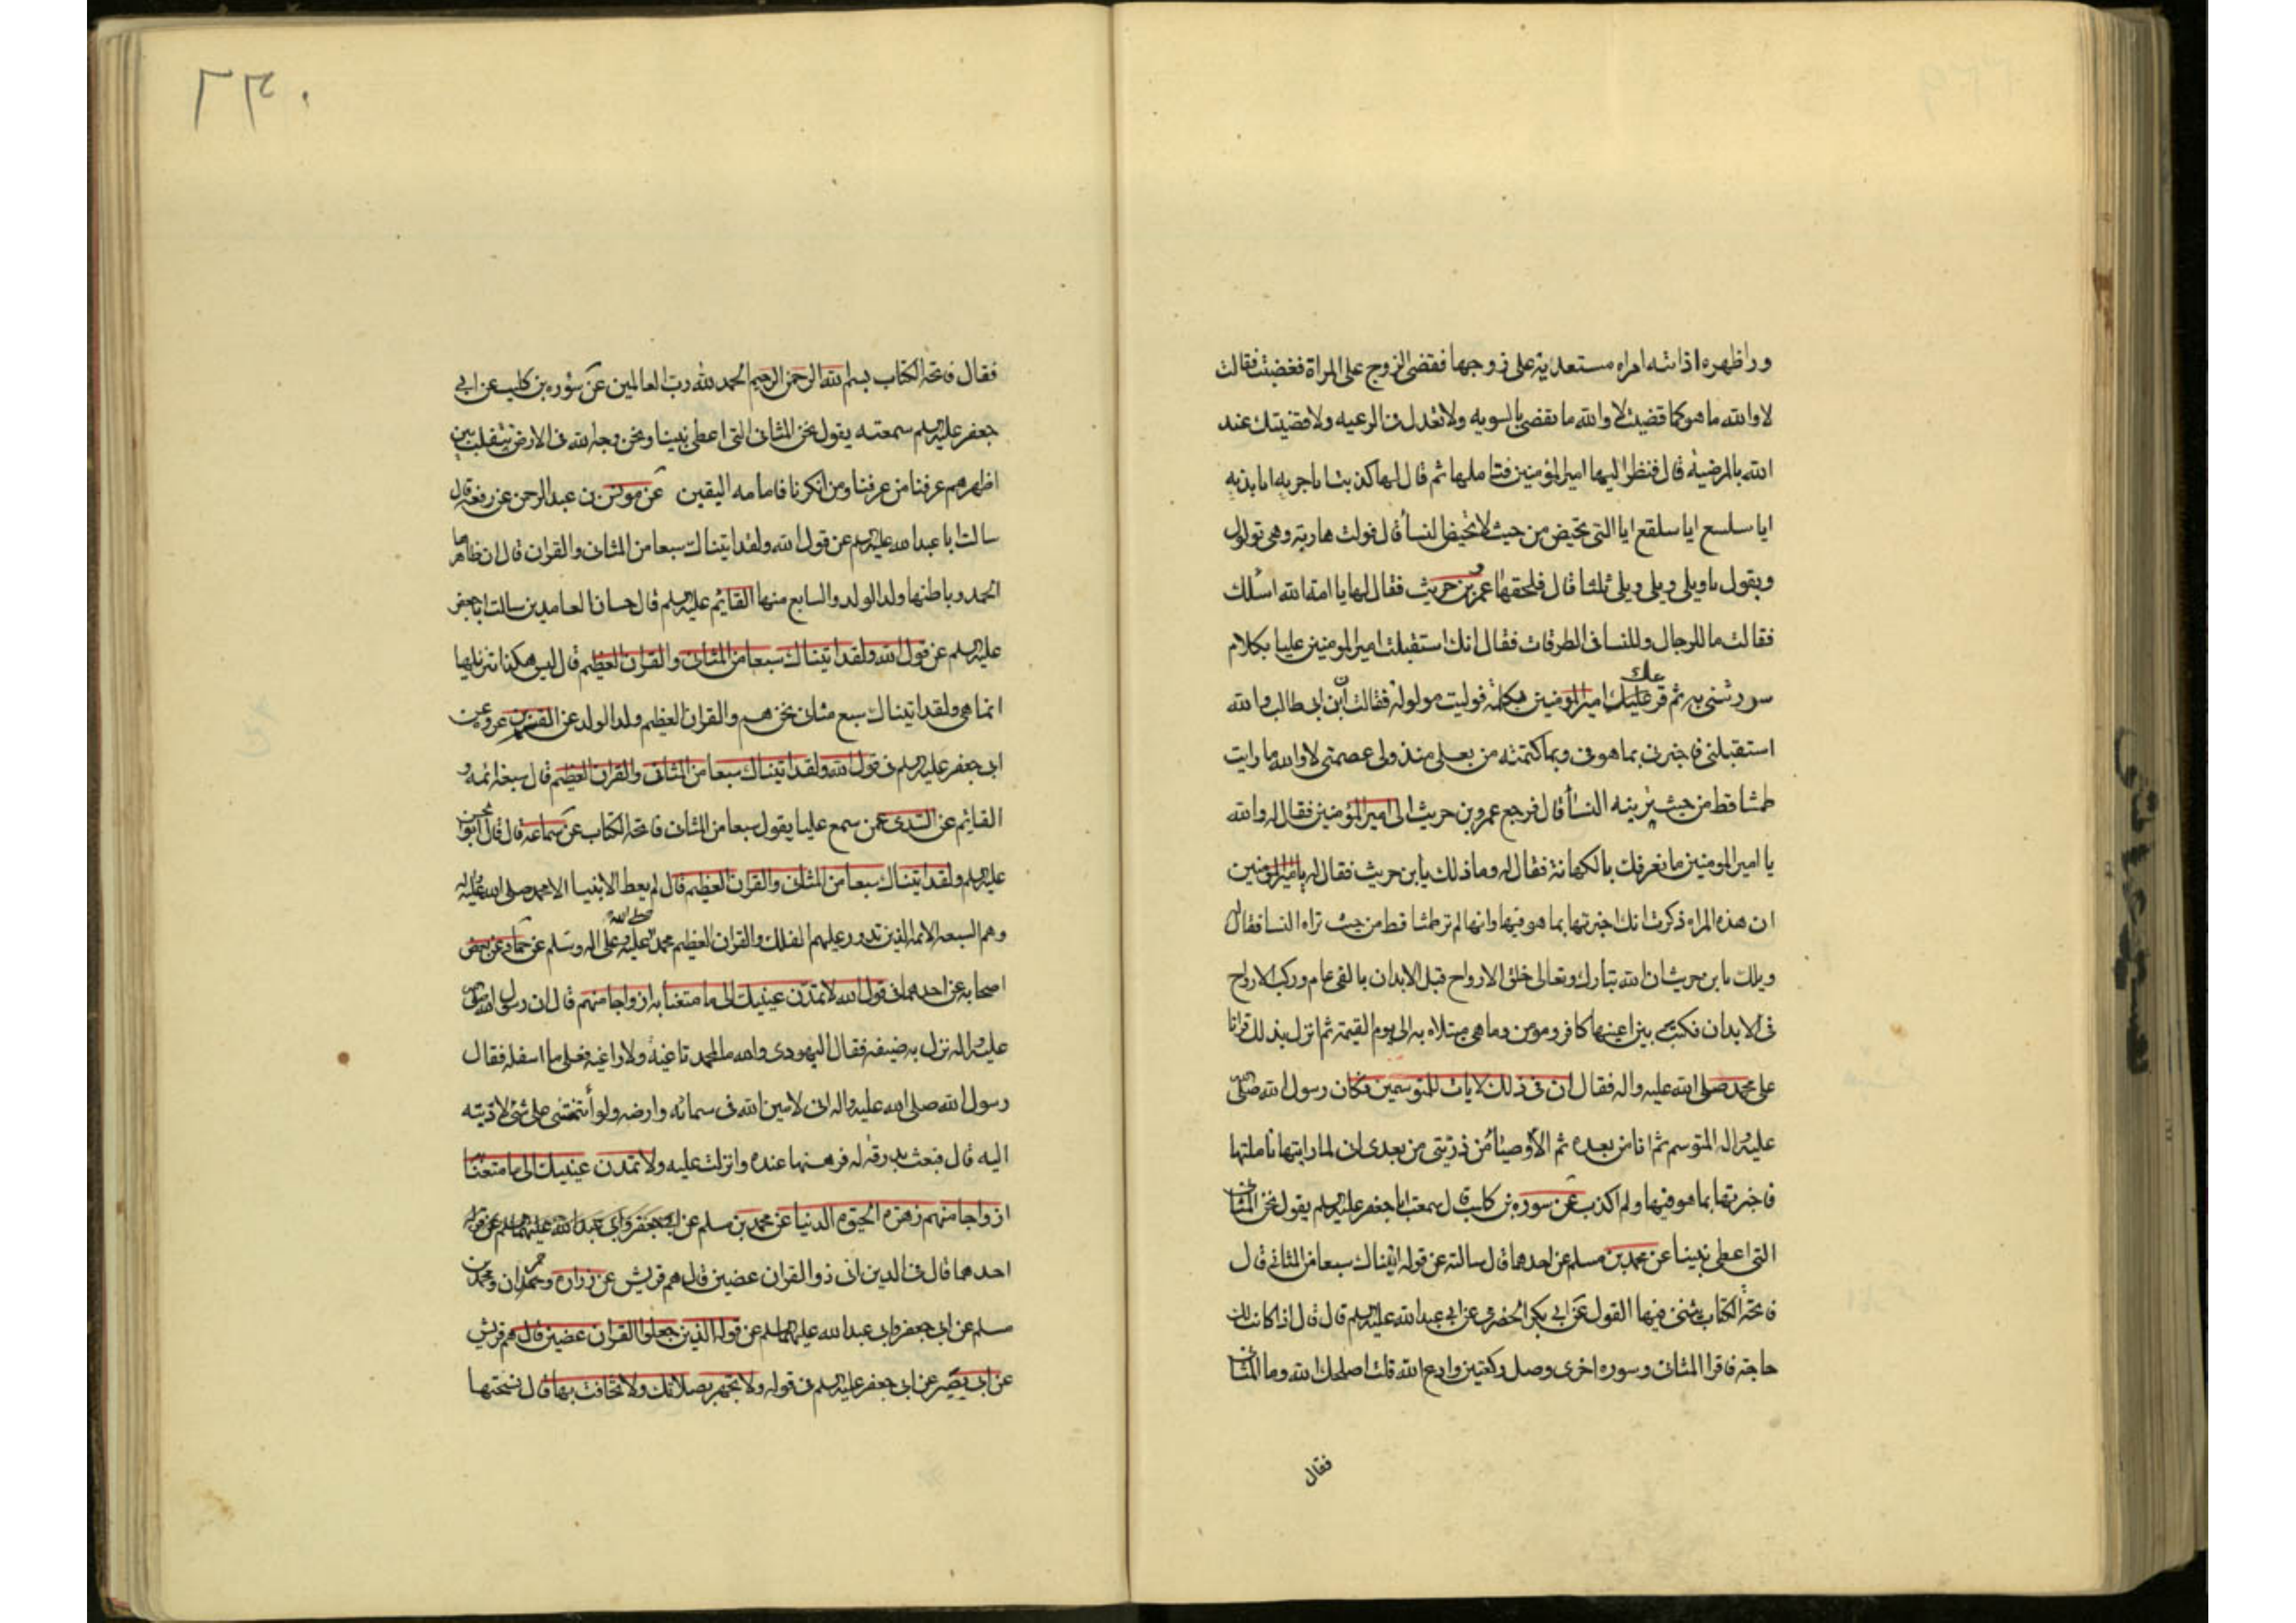 ورا ظهره اذ اتته امراه مستعدية على زوجها فقضى للزوج على المراة فغضبت فقالت
لا والله ما هو كما قضيت لا والله ما تقضى بالسويه ولا تعدل فى الرعيه ولا قضيتك عند
الله بالمرضية قال فنظر اليها امير المؤمنين فتاملها ثم قال لها كذبت يا جريه يا بذيه
ايا سلسع ايا سلقع ايا التى تحيض من حيث لا تحيض النسأ قال فولت هاربة وهى تولول
وتقول يا ويلى ويلى ويلى ثلثا قال فلحقها عمرو بن حريث فقال لها يا امة الله اسئلك
فقالت ما للرجال وللنسا فى الطرقات فقال انك استقبلت امير المومنين عليا بكلام
سررتنى به ثم قر عليك امير المومنين بكلمة فوليت مولولة فقالت ان ابن ابى طالب والله
استقبلنى فاخبرنى بما هو فى وبما كتمته من بعلى منذ ولى عصمتى لا والله ما رايت
طمثا قط من حيث يرينه النسأ قال فرجع عمرو بن حريث الى امير المؤمنين فقال له والله
يا امير المومنين ما نعرفك بالكهانة فقال له وما ذلك يا بن حريث فقال له يا امير المومنين
ان هذه المراه ذكرت انك اخبرتها بما هو فيها وانها لم تر طمثا قط من حيث تراه النسا فقال له
ويلك يا بن حريث ان الله تبارك وتعالى خلق الارواح قبل الابدان بالفى عام وركب الارواح
فى الابدان فكتب بين اعينها كافر ومومن وما هى مبتلاه به الى يوم القيمة ثم انزل بذلك قرانا
على محمد صلى الله عليه واله فقال ان فى ذلك لايات للمتوسمين فكان رسول الله صلى
عليه واله المتوسم ثم انا من بعده ثم الأوصيأ من ذريتى من بعدى انى لما رايتها تاملتها
فاخبرتها بما هو فيها ولم اكذب عن سوره بن كليب قال سمعت ابا جعفر عليه السلم يقول نحن المثانى
التى اعطى نبينا عن محمد بن مسلم عن احدهما قال سالته عن قوله اتيناك سبعا من المثانى قال
فاتحة الكتاب يثنى فيها القول عن ابى بكر الحضرمى عن ابى عبد الله عليه السلم قال قال اذا كانت لك
حاجة فاقرا المثانى وسوره اخرى وصل ركعتين وادع الله قلت اصلحك الله وما المثانى
فقال
٢٣٠
فقال فاتحة الكتاب بسم الله الرحمن الرحيم الحمد لله رب العالمين عن سوره بن كليب عن ابى
جعفر عليه السلم سمعته يقول نحن المثانى التى اعطى نبينا ونحن وجه الله فى الارض نتقلب بين
اظهرهم عرفنا من عرفنا ومن انكرنا فامامه اليقين عن يونس بن عبد الرحمن عن رفعه قال
سالت ابا عبد الله عليه السلم عن قول الله ولقد اتيناك سبعا من المثانى والقران قال ان ظاهرها
الحمد وباطنها ولد الولد والسابع منها القايم عليه السلم قال حسان العامدى سالت ابا جعفر
عليه السلم عن قول الله ولقد اتيناك سبعا من المثانى والقران العظيم قال ليس هكذا تنزيلها
انما هى ولقد اتيناك سبع مثانى نحن هم والقران العظيم ولد الولد عن القسم بن عروه عن
ابى جعفر عليه السلم فى قول الله ولقد اتيناك سبعا من المثانى والقران العظيم قال سبعة ائمه و
القايم عن السدى عمن سمع عليا يقول سبعا من المثانى فاتحة الكتاب عن سماعة قال قال ابو الحسن
عليه السلم ولقد اتيناك سبعا من المثانى والقران العظيم قال لم يعط الانبيا الا محمد صلى الله عليه واله
وهم السبعه الائمه الذين تدور عليهم الفلك والقران العظيم محمد صلى الله عليه وعلى اله وسلم عن حماد عن بعض
اصحابه عن احدهما فى قول الله لا تمدن عينيك الى ما متعنا به ازواجا منهم قال ان رسول الله صلى
عليه واله نزل به ضيفه فقال اليهودى والله ما لمحمد ثاغية ولا راغيه فعلى ما اسفله فقال
رسول الله صلى الله عليه واله انى لامين الله فى سمائه وارضه ولو أتمنتنى على شئ لاديته
اليه قال فبعث بدرقة له فرهنها عنده وانزلت عليه ولا تمدن عينيك الى ما متعنا به
ازواجا منهم زهره الحيوه الدنيا عن محمد بن مسلم عن ابى جعفر وابى عبد الله عليهما السلم عن قوله
احدهما قال فى الدين اتى ذو القران عضين قال هم قريش عن زراره وحمران ومحمد بن
مسلم عن ابى جعفر وابى عبد الله عليهما السلم عن قوله الذين جعلوا القران عضين قال هم قريش
عن ابى بصير عن ابى جعفر عليه السلم فى قوله ولا تجهر بصلاتك ولا تخافت بها قال نسختها